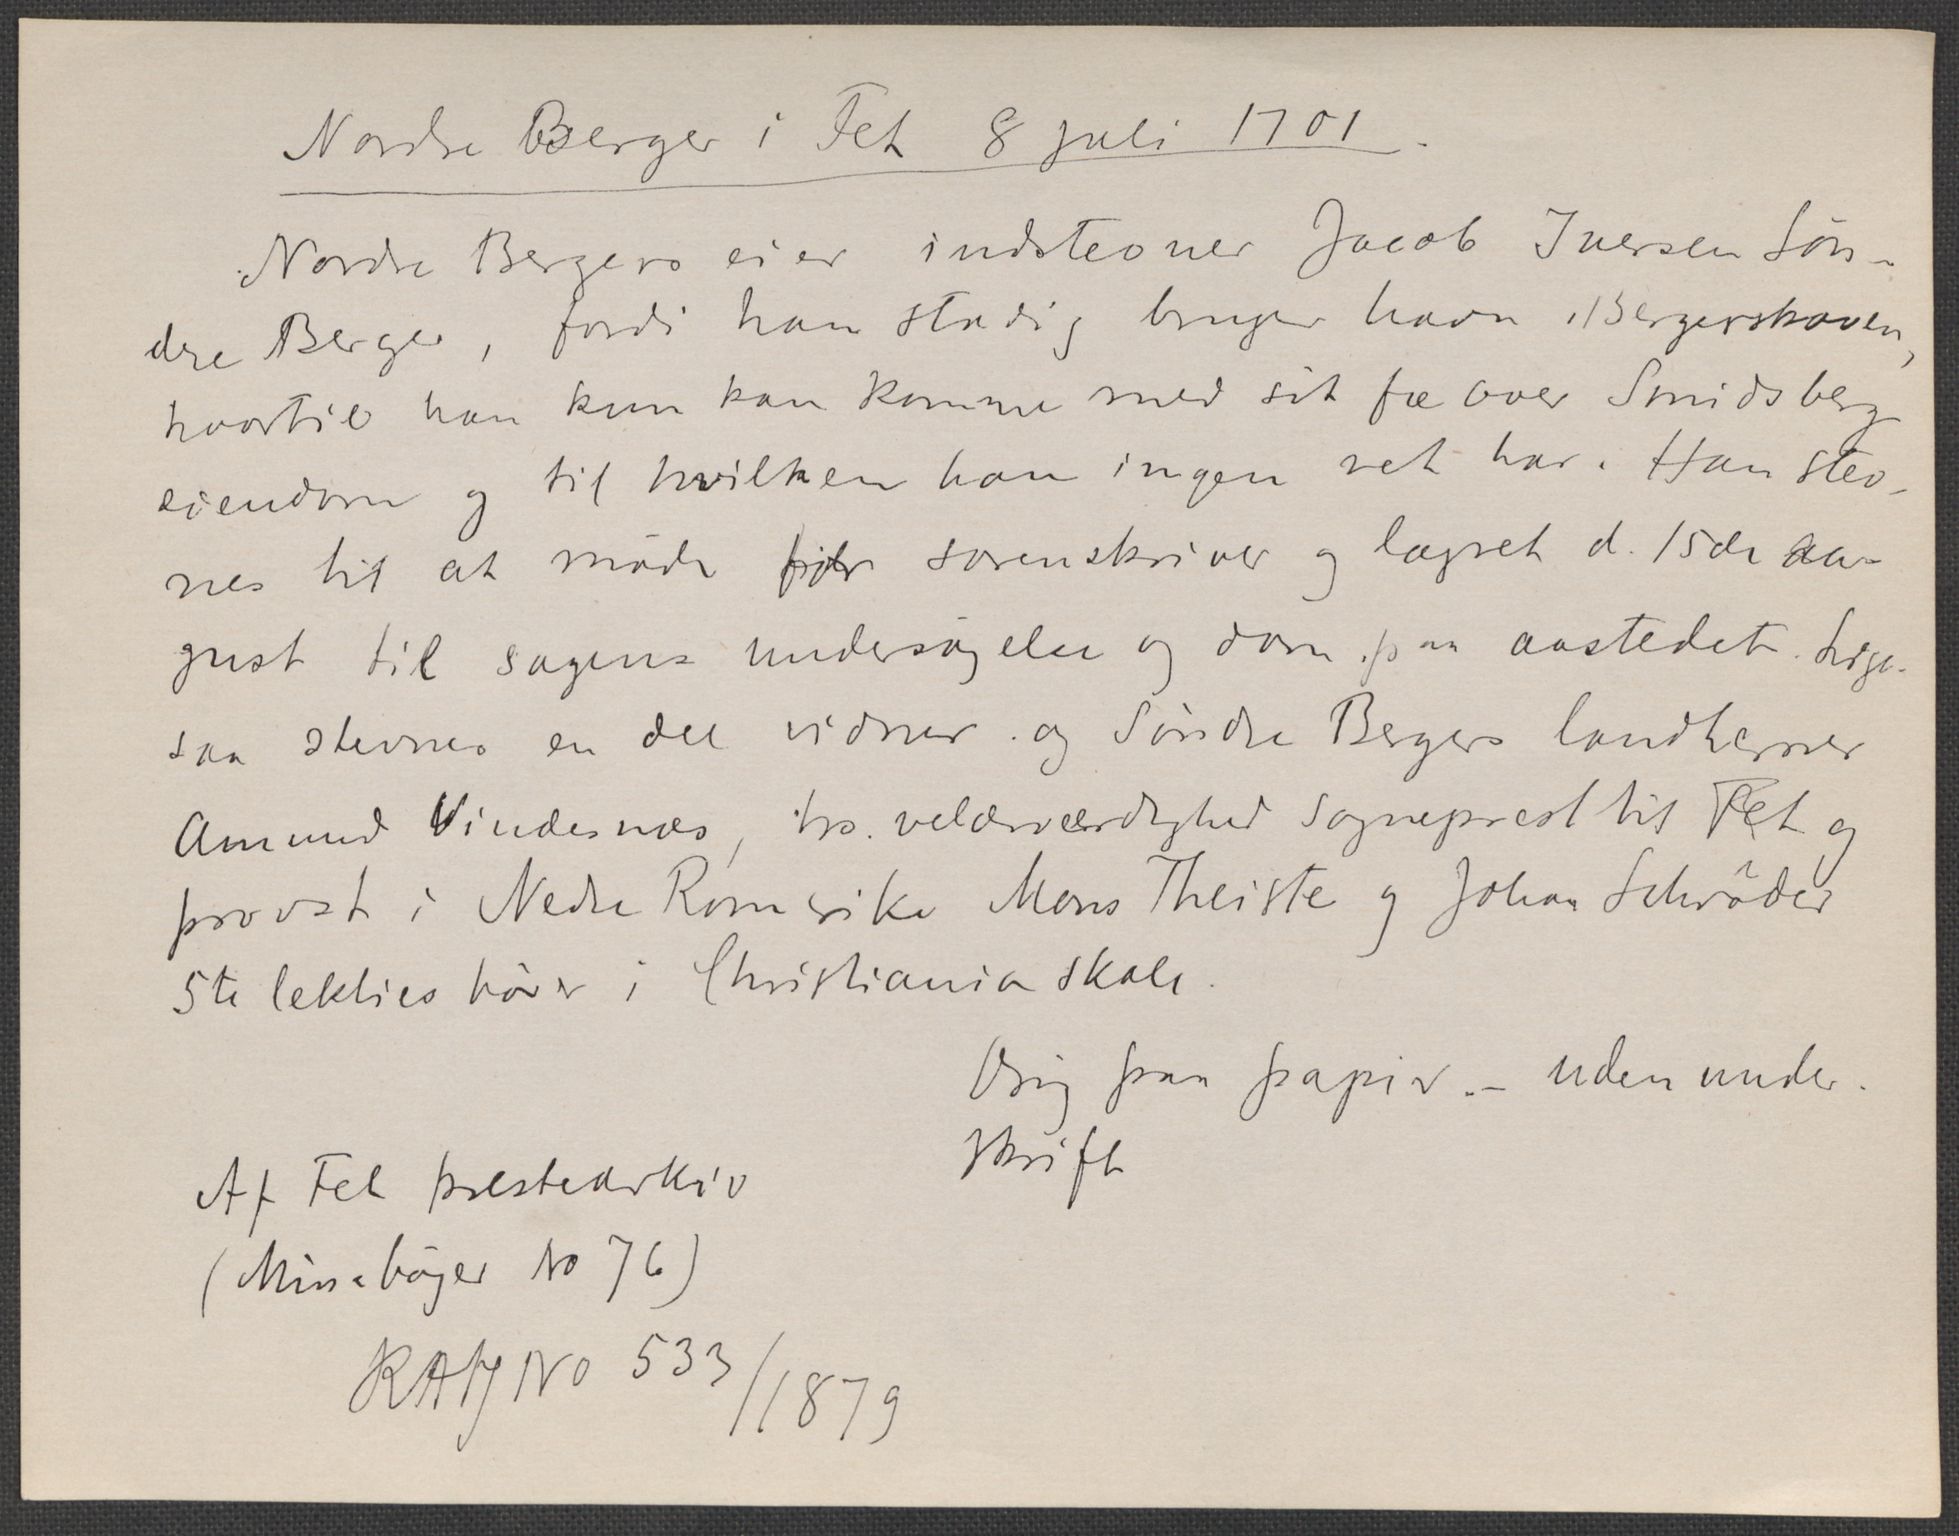 Nordre Berger i Fet 8 juli 1701.
Nordre Bergers eier indstevner Jacob Iversen Sön-
dre Berger, fordi han stadig bruger havn i Bergerskoven,
hvortil han kun kan komme med sit fæ over Smidsberg
eiendom og til hvilken han ingen ret har. Han stev-
nes til at möde for sorenskriver og lagret d. 15de au-
gust til sagens undersögelse og dom paa aastedet. Lige-
saa stevnes en del vidner og Söndre Bergers landherrer
Amund Vindesnæs, hs. velærværdighed sogneprest til Fet og
provst i Nedre Romerike Mons Theiste og Johan Schröder
5te lekties hörer i Christiania skole.
Orig paa papir. – uden under-
skrift
Af Fet prestearkiv
(Minseböger No 76)
RA No 533/1879